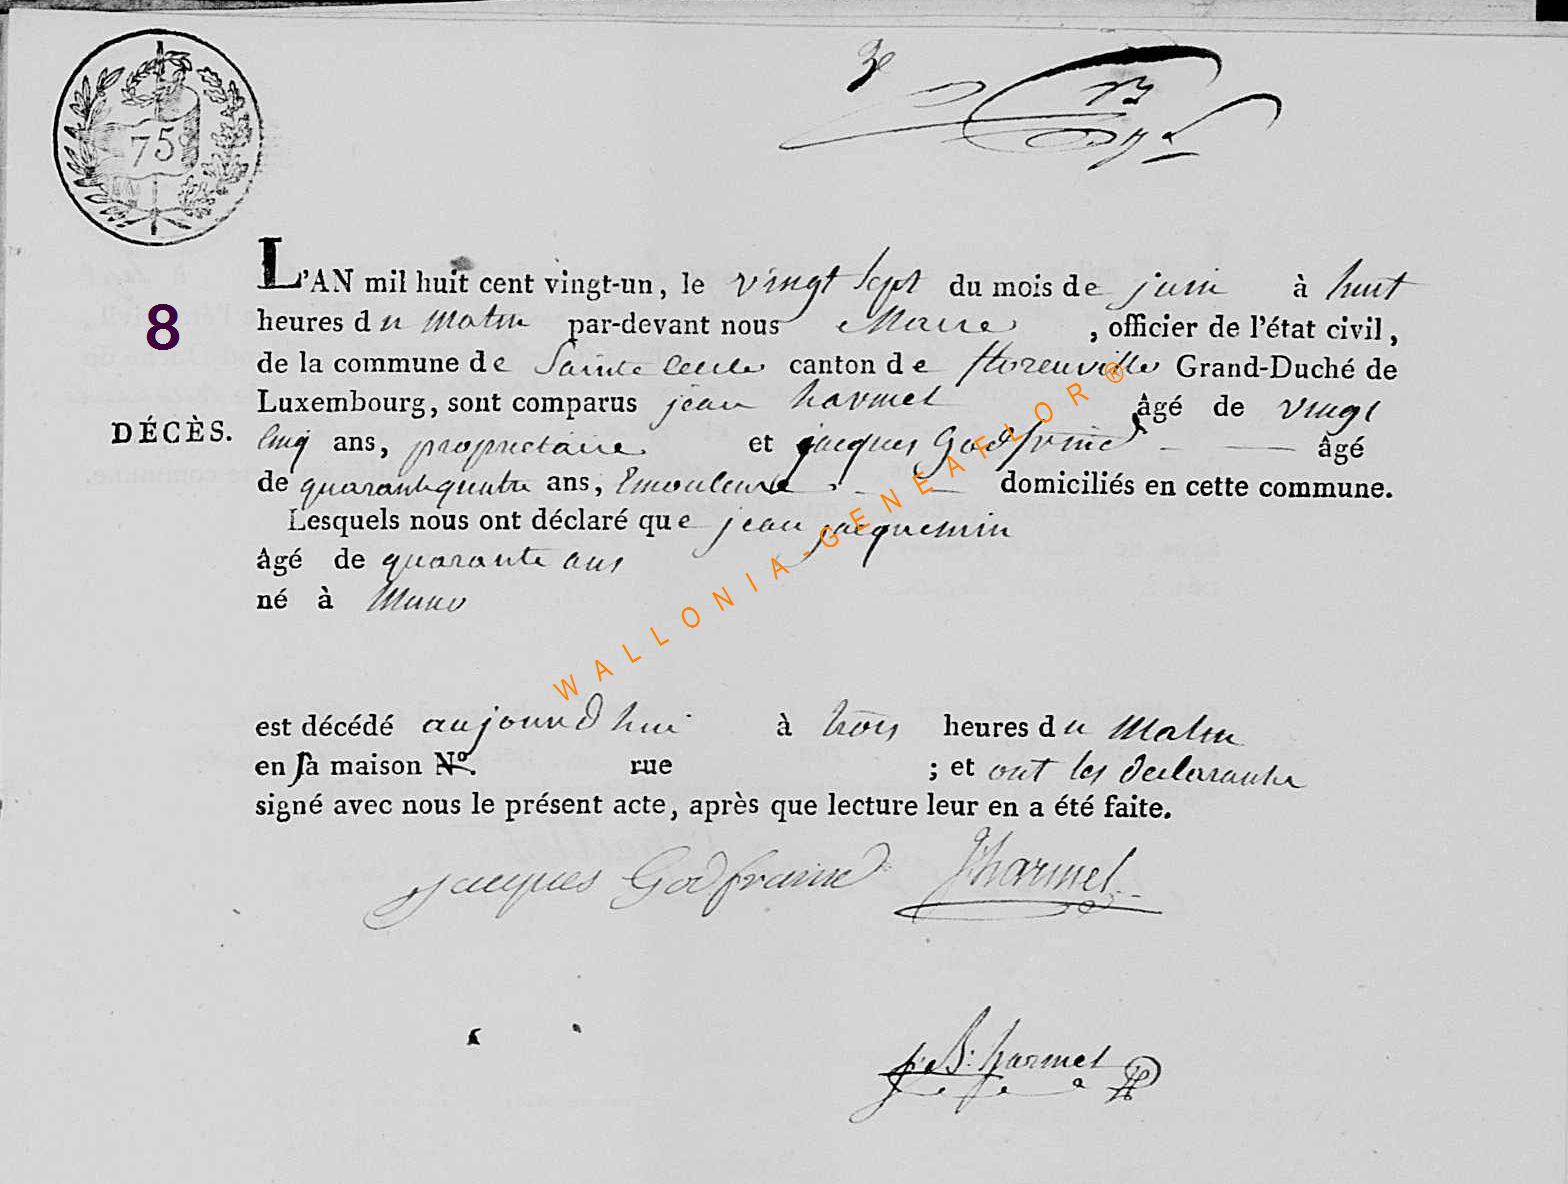 75
3e
L'AN mil huit cent vingt-un, le vingt sept du mois de juin à huit
8
heures du matin par-devant nous Maire, officier de l'état civil,
de la commune de Sainte Cecile canton de florenville Grand-Duché de
Luxembourg, sont comparus jean harmel âgé de vingt
DÉCÈS.
cinq ans, proprietaire et jacques Godfrind âgé
de quarante quatre ans, Emouleur domiciliés en cette commune.
Lesquels nous ont déclaré que jean jacquemin
âgé de quarante ans
né à Muno
WALLONIA-GENEAFLOR®
est décédé aujourd hui à trois heures du matin
en sa maison No. rue ; et ont les declarants
signé avec nous le présent acte, après que lecture leur en a été faite.
jacques Godfraind Jharmel
j: B: harmel